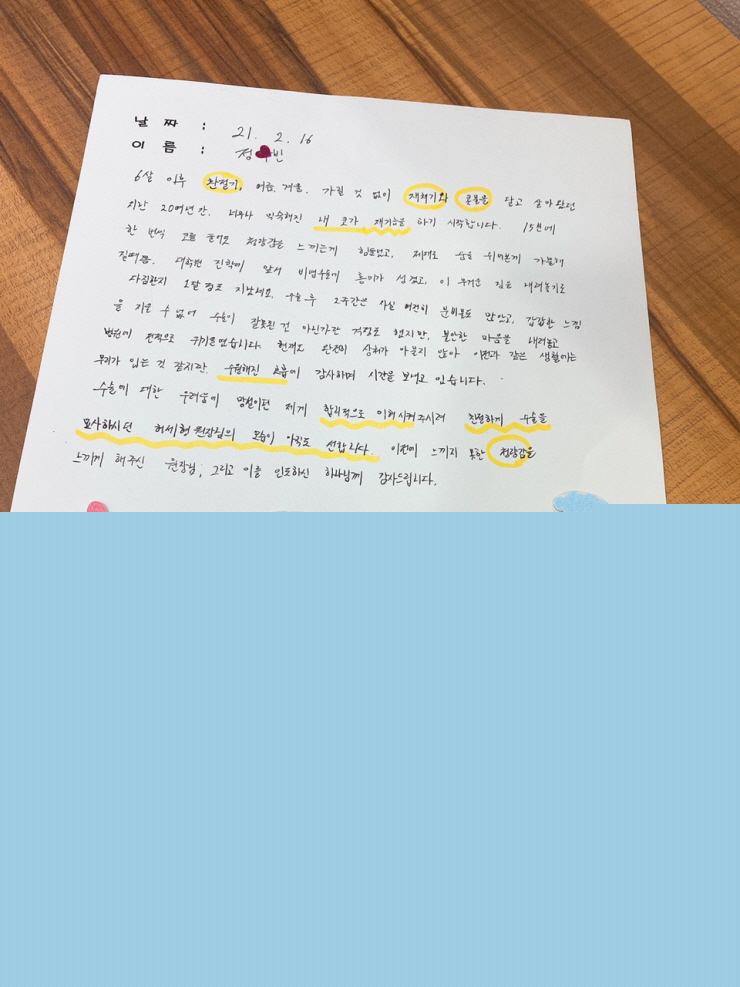 날 짜 : 21. 2. 16
이 름 : 정 빈
6살 이후 환절기, 여름, 겨울, 가릴 것 없이 재채기와 콧물을 달고 살아왔던
지난 20여년간. 너무나 익숙해진 내 코가 제기능을 하기 시작합니다. 15분에
한 번씩 코를 풀어도 청량감을 느끼는게 힘들었고, 제대로 숨을 쉬어본게 가물해
질때쯤. 대학병 진학에 앞서 비염수술에 흥미가 생겼고, 이 무거운 짐을 내려놓기로
다짐한지 1달 정도 지났네요. 수술 후 2주간은 사실 여전히 분비물도 많았고, 갑갑한 느낌
을 지울 수 없어 수술이 잘못된 건 아닌가란 걱정도 했지만, 불안한 마음을 내려놓고
병원에 전적으로 귀기울였습니다. 현재도 완전히 상처가 아물지 않아 이전과 같은 생활에는
무리가 있는 것 같지만, 수월해진 호흡에 감사하며 시간을 보내고 있습니다.
수술에 대한 두려움이 망설이던 제게 합리적으로 이해시켜주시려 친절하게 수술을
묘사하시던 허세형 원장님의 모습이 아직도 선합니다. 이전에 느끼지 못한 청량감을
느끼게 해주신 원장님, 그리고 이를 인도하신 하나님께 감사드립니다.